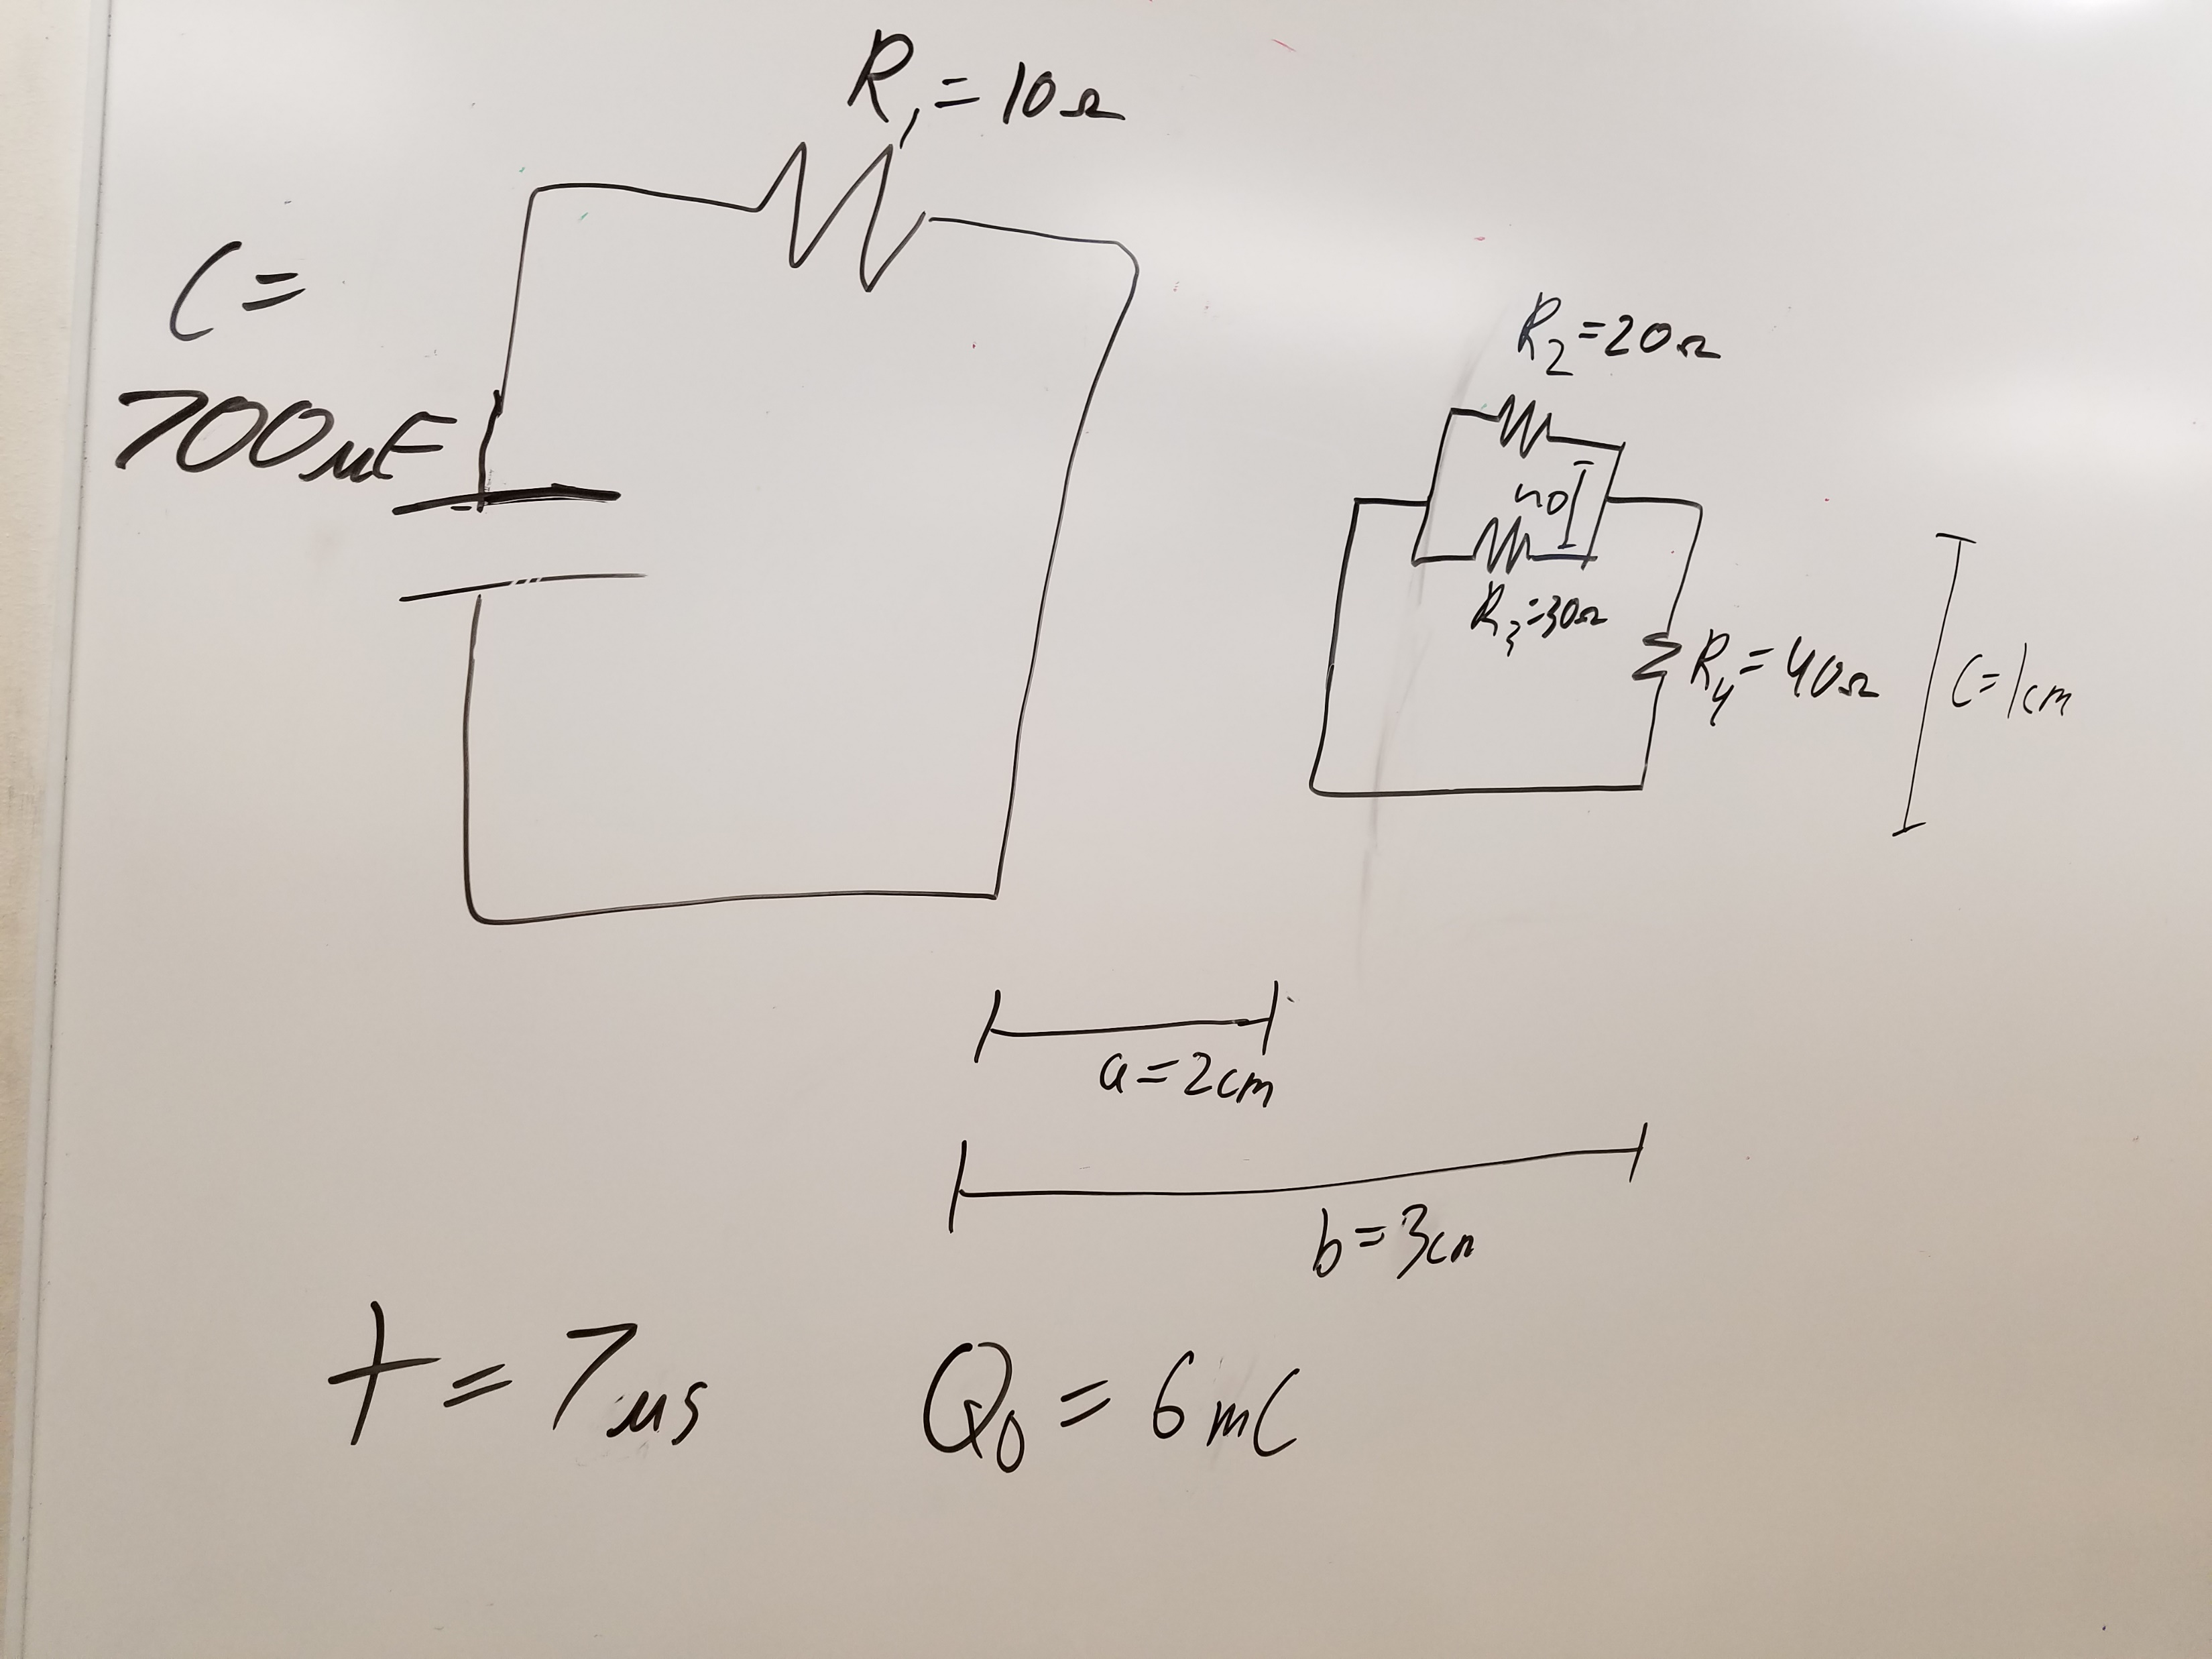 R₁ = 10Ω
C =
700μF
R₂ = 20Ω
no
R₃ = 30Ω
R₄ = 40Ω
C = 1cm
a = 2cm
b = 3cm
t = 7μs
Q₀ = 6mC